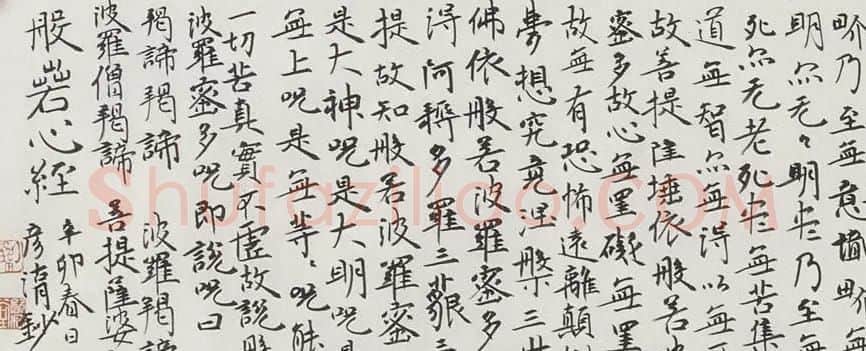 畍乃至無意識畍無
明亦无〻明盡乃至無
死亦无老死盡無苦集
道無智亦無得以無
故菩提薩埵依般若
密多故心無罣礙無罣
故無有恐怖遠離顛倒
夢想究竟涅槃三世
佛依般若波羅密多
得阿耨多羅三藐三
提故知般若波羅密
是大神呪是大明呪是
無上呪是無等〻呪能
一切苦真實不虛故說般
波羅密多呪即說呪曰
羯諦羯諦 波羅羯諦
波羅僧羯諦 菩提薩婆
般若心經 辛卯春日
鈔
Shufaziliao.COM